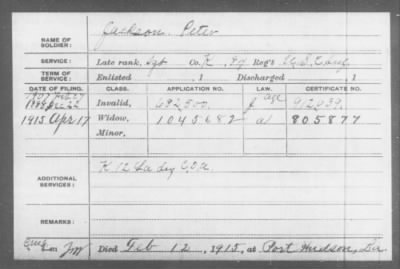 NAME OF SOLDIER: Jackson, Peter
SERVICE: Late rank, Sgt Co. K, 84 Reg't U.S.C. Inf
TERM OF SERVICE: Enlisted , 1 Discharged , 1
DATE OF FILING. CLASS. APPLICATION NO. LAW. CERTIFICATE NO.
1907 Feb 27
1888 Dec 22 Invalid, 682,500. age 912,039.
1915 Apr 17 Widow, 1045682 805877
Minor,
ADDITIONAL SERVICES: K 12 La
REMARKS:
Died Feb 12, 1915, at Port Hudson, La